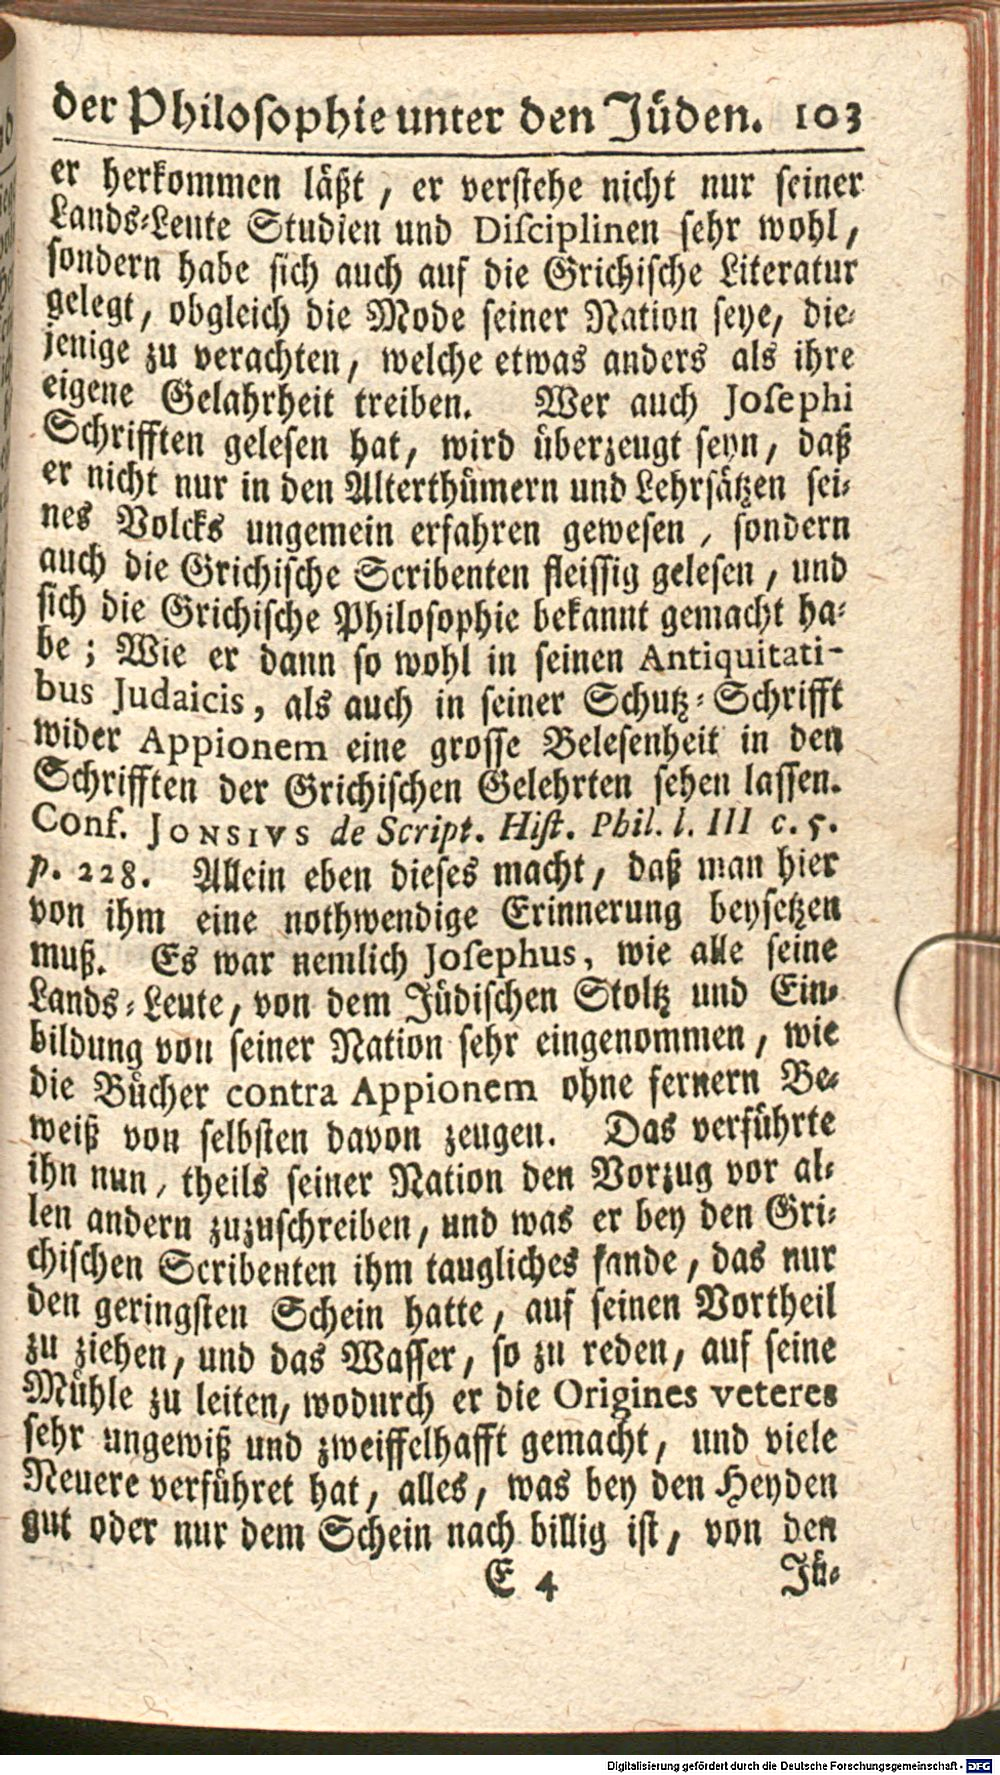 der Philosophie unter den Jüden. 103
er herkommen läßt, er verstehe nicht nur seiner
Lands-Leute Studien und Disciplinen sehr wohl,
sondern habe sich auch auf die Grichische Literatur
gelegt, obgleich die Mode seiner Nation seye, die-
jenige zu verachten, welche etwas anders als ihre
eigene Gelahrheit treiben. Wer auch Josephi
Schrifften gelesen hat, wird überzeugt seyn, daß
er nicht nur in den Alterthümern und Lehrsätzen sei-
nes Volcks ungemein erfahren gewesen, sondern
auch die Grichische Scribenten fleissig gelesen, und
sich die Grichische Philosophie bekannt gemacht ha-
be; Wie er dann so wohl in seinen Antiquitati-
bus Judaicis, als auch in seiner Schutz-Schrifft
wider Appionem eine grosse Belesenheit in den
Schrifften der Grichischen Gelehrten sehen lassen.
Conf. JONSIVS de Script. Hist. Phil. l. III c. 5.
p. 228. Allein eben dieses macht, daß man hier
von ihm eine nothwendige Erinnerung beysetzen
muß. Es war nemlich Josephus, wie alle seine
Lands-Leute, von dem Jüdischen Stoltz und Ein-
bildung von seiner Nation sehr eingenommen, wie
die Bücher contra Appionem ohne fernern Be-
weiß von selbsten davon zeugen. Das verführte
ihn nun, theils seiner Nation den Vorzug vor al-
len andern zuzuschreiben, und was er bey den Gri-
chischen Scribenten ihm taugliches fande, das nur
den geringsten Schein hatte, auf seinen Vortheil
zu ziehen, und das Wasser, so zu reden, auf seine
Mühle zu leiten, wodurch er die Origines veteres
sehr ungewiß und zweiffelhafft gemacht, und viele
Neuere verführet hat, alles, was bey den Heyden
gut oder nur dem Schein nach billig ist, von den
E 4 Jü-
Digitalisierung gefördert durch die Deutsche Forschungsgemeinschaft - DFG